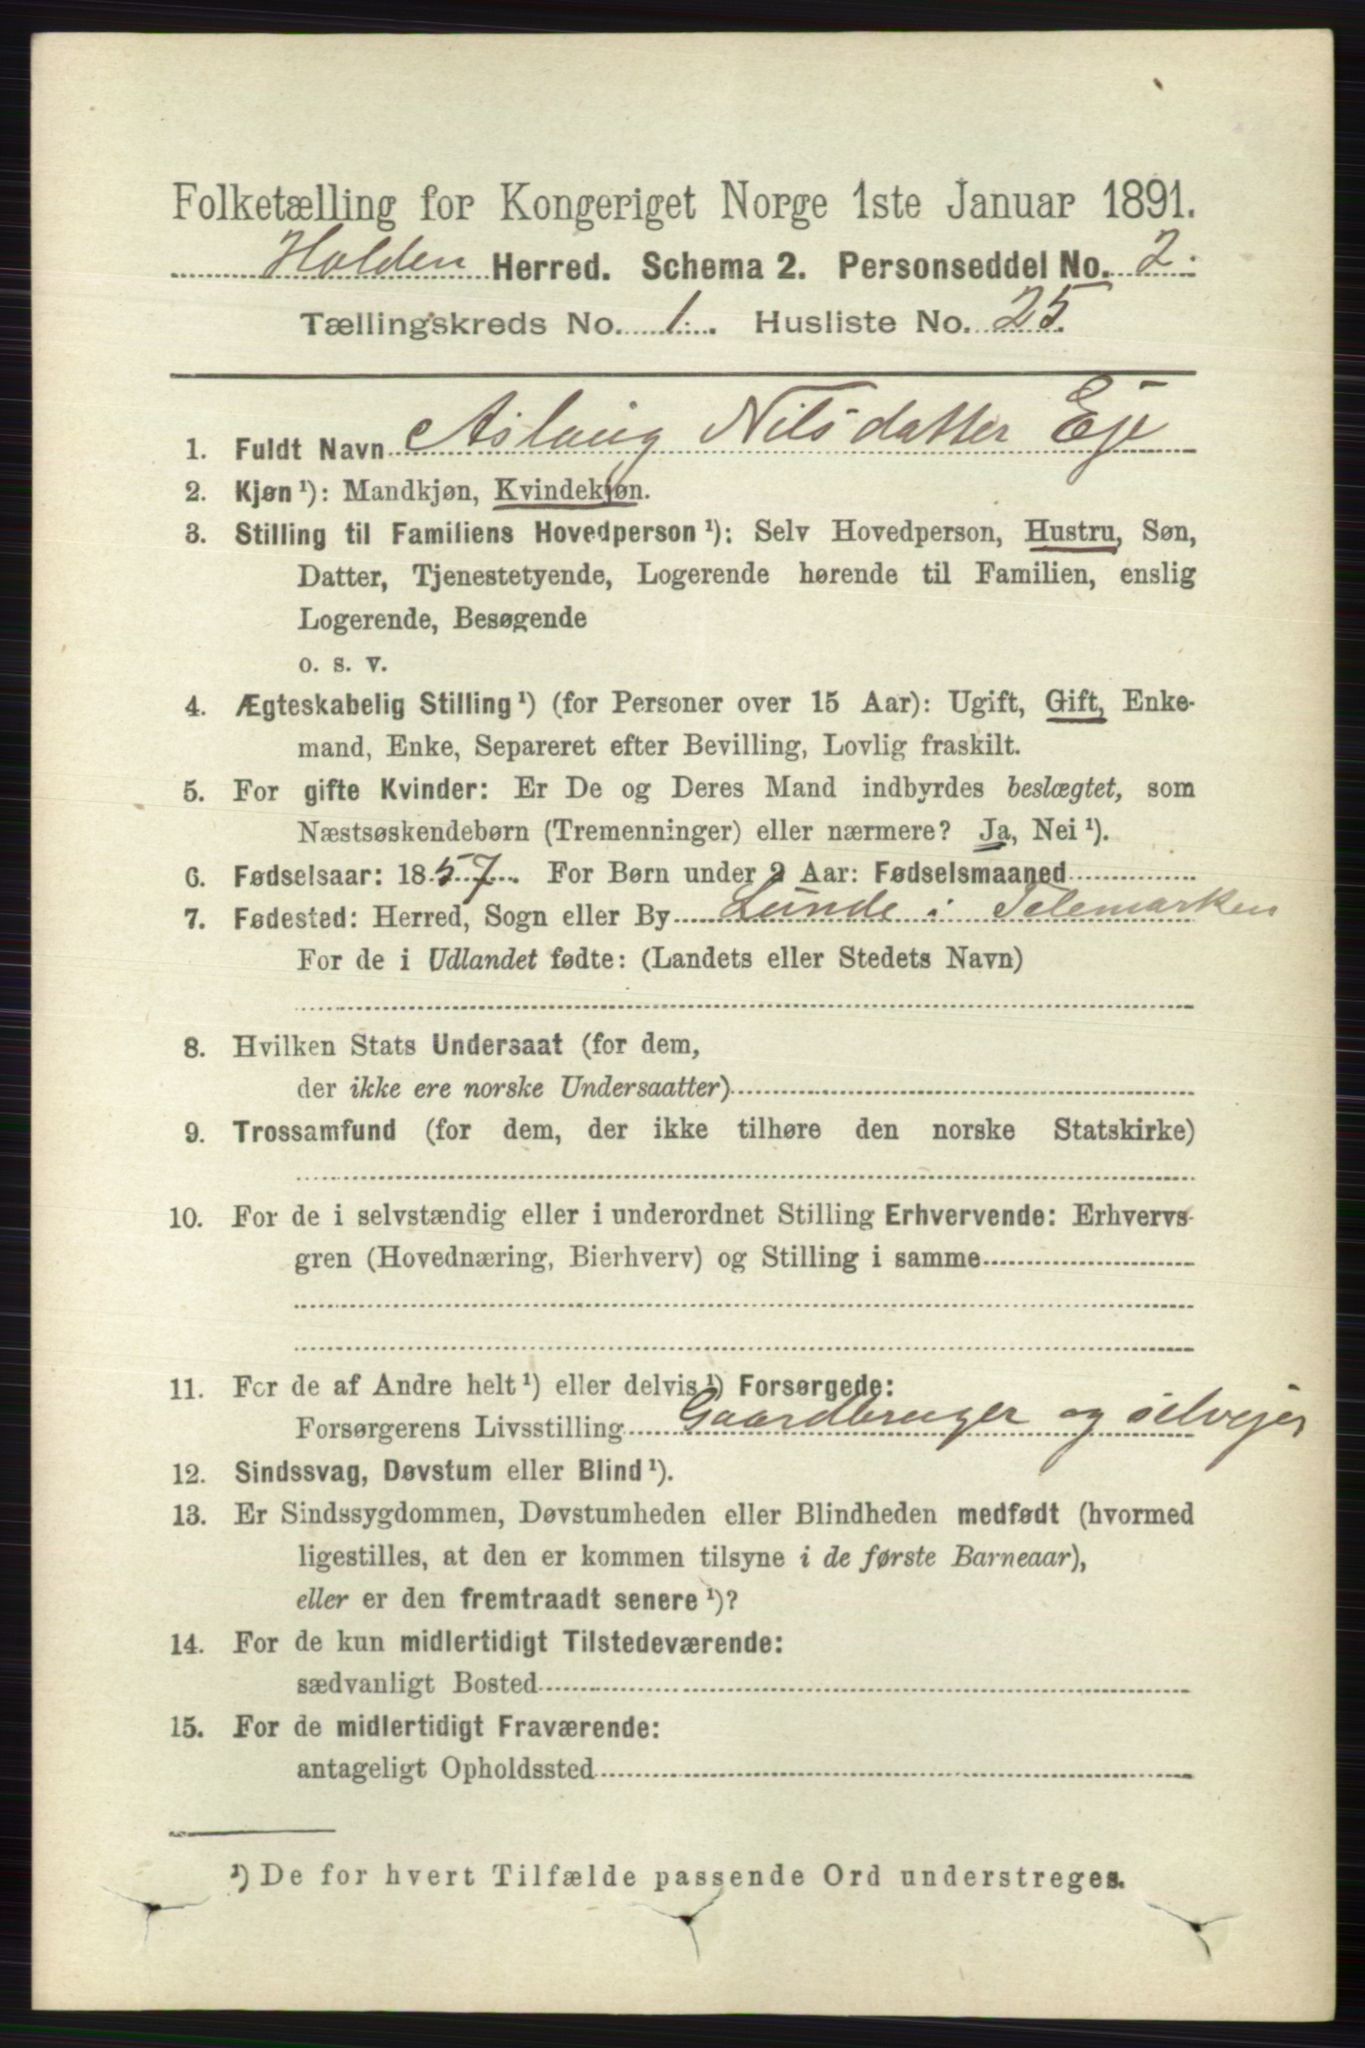 Folketælling for Kongeriget Norge 1ste Januar 1891.
Holden Herred. Schema 2. Personseddel No. 2.
Tællingskreds No. 1. Husliste No. 25.
1. Fuldt Navn Aslaug Nilsdatter Eje
2. Kjøn ¹): Mandkjøn, Kvindekjøn.
3. Stilling til Familiens Hovedperson ¹): Selv Hovedperson, Hustru, Søn,
Datter, Tjenestetyende, Logerende hørende til Familien, enslig
Logerende, Besøgende
o. s. v.
4. Ægteskabelig Stilling ¹) (for Personer over 15 Aar): Ugift, Gift, Enke-
mand, Enke, Separeret efter Bevilling, Lovlig fraskilt.
5. For gifte Kvinder: Er De og Deres Mand indbyrdes beslægtet, som
Næstsøskendebørn (Tremenninger) eller nærmere? Ja, Nei ¹).
6. Fødselsaar: 1857. For Børn under 2 Aar: Fødselsmaaned
7. Fødested: Herred, Sogn eller By Lunde i Telemarken
For de i Udlandet fødte: (Landets eller Stedets Navn)
8. Hvilken Stats Undersaat (for dem,
der ikke ere norske Undersaatter)
9. Trossamfund (for dem, der ikke tilhøre den norske Statskirke)
10. For de i selvstændig eller i underordnet Stilling Erhvervende: Erhvervs-
gren (Hovednæring, Bierhverv) og Stilling i samme
11. For de af Andre helt ¹) eller delvis ¹) Forsørgede:
Forsørgerens Livsstilling Gaardbruger og selvejer
12. Sindssvag, Døvstum eller Blind ¹).
13. Er Sindssygdommen, Døvstumheden eller Blindheden medfødt (hvormed
ligestilles, at den er kommen tilsyne i de første Barneaar),
eller er den fremtraadt senere ¹)?
14. For de kun midlertidigt Tilstedeværende:
sædvanligt Bosted
15. For de midlertidigt Fraværende:
antageligt Opholdssted
¹) De for hvert Tilfælde passende Ord understreges.